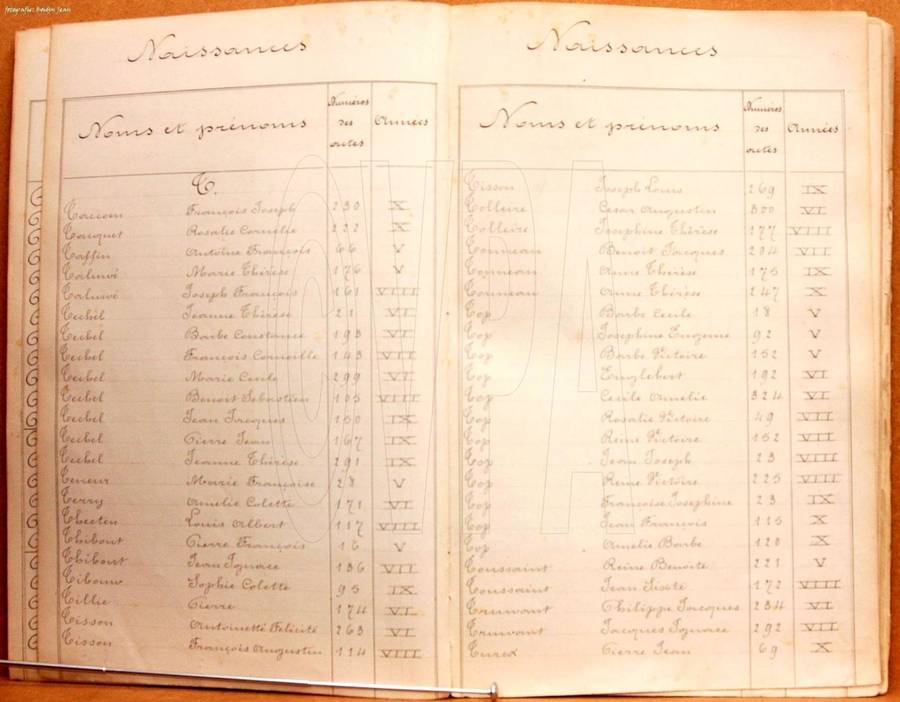 fotografie: Boutin Jean
Naissances
Noms et prénoms Numéros des actes Années
T.
Taccoen François Joseph 230 X
Tacquet Rosalie Cornelie 222 X
Taffin Antoine François 66 V
Taluwé Marie Thérèse 176 V
Taluwé Joseph François 161 VIII
Teebel Jeanne Thérèse 21 VI
Teebel Barbe Constance 193 VI
Teebel François Corneille 143 VII
Teebel Marie Cecile 299 VI
Teebel Benoit Sebastien 105 VIII
Teebel Jean Jacques 150 IX
Teebel Pierre Jean 167 IX
Teebel Jeanne Thérèse 291 IX
Teneur Marie Françoise 28 V
Terry Amelie Colette 171 VI
Theeten Louis Albert 117 VIII
Thibout Pierre François 16 V
Thibout Jean Ignace 136 VII
Sophie Colette 95 IX
Tillie Pierre 174 VI
Tisson Antoinette Felicité 263 VI
Tisson François Augustin 114 VIII
Naissances
Noms et prénoms Numéros des actes Années
Tisson Joseph Louis 269 IX
Tolleire Cesar Augustin 300 VI
Tolleire Josephine Thérèse 177 VIII
Tonneau Benoit Jacques 204 VII
Tonneau Anne Thérèse 175 IX
Tonneau Anne Thérèse 247 X
Top Barbe Cecile 18 V
Top Josephine Eugenie 92 V
Top Barbe Victoire 152 V
Top Englebert 192 VI
Top Cecile Amelie 324 VI
Top Rosalie Victoire 49 VII
Top Reine Victoire 152 VII
Top Jean Joseph 23 VIII
Top Reine Victoire 225 VIII
Top Françoise Josephine 23 IX
Top Jean François 115 X
Top Amelie Barbe 120 X
Toussaint Reine Benoite 221 V
Toussaint Jean 172 VIII
Truwant Philippe Jacques 234 VI
Truwant Jacques Ignace 292 VII
Turex Pierre Jean 69 X
CVPA